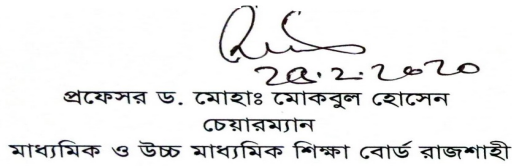 ২৪.2.2020
প্রফেসর ড. মোহাঃ মোকবুল হোসেন
চেয়ারম্যান
মাধ্যমিক ও উচ্চ মাধ্যমিক শিক্ষা বোর্ড রাজশাহী